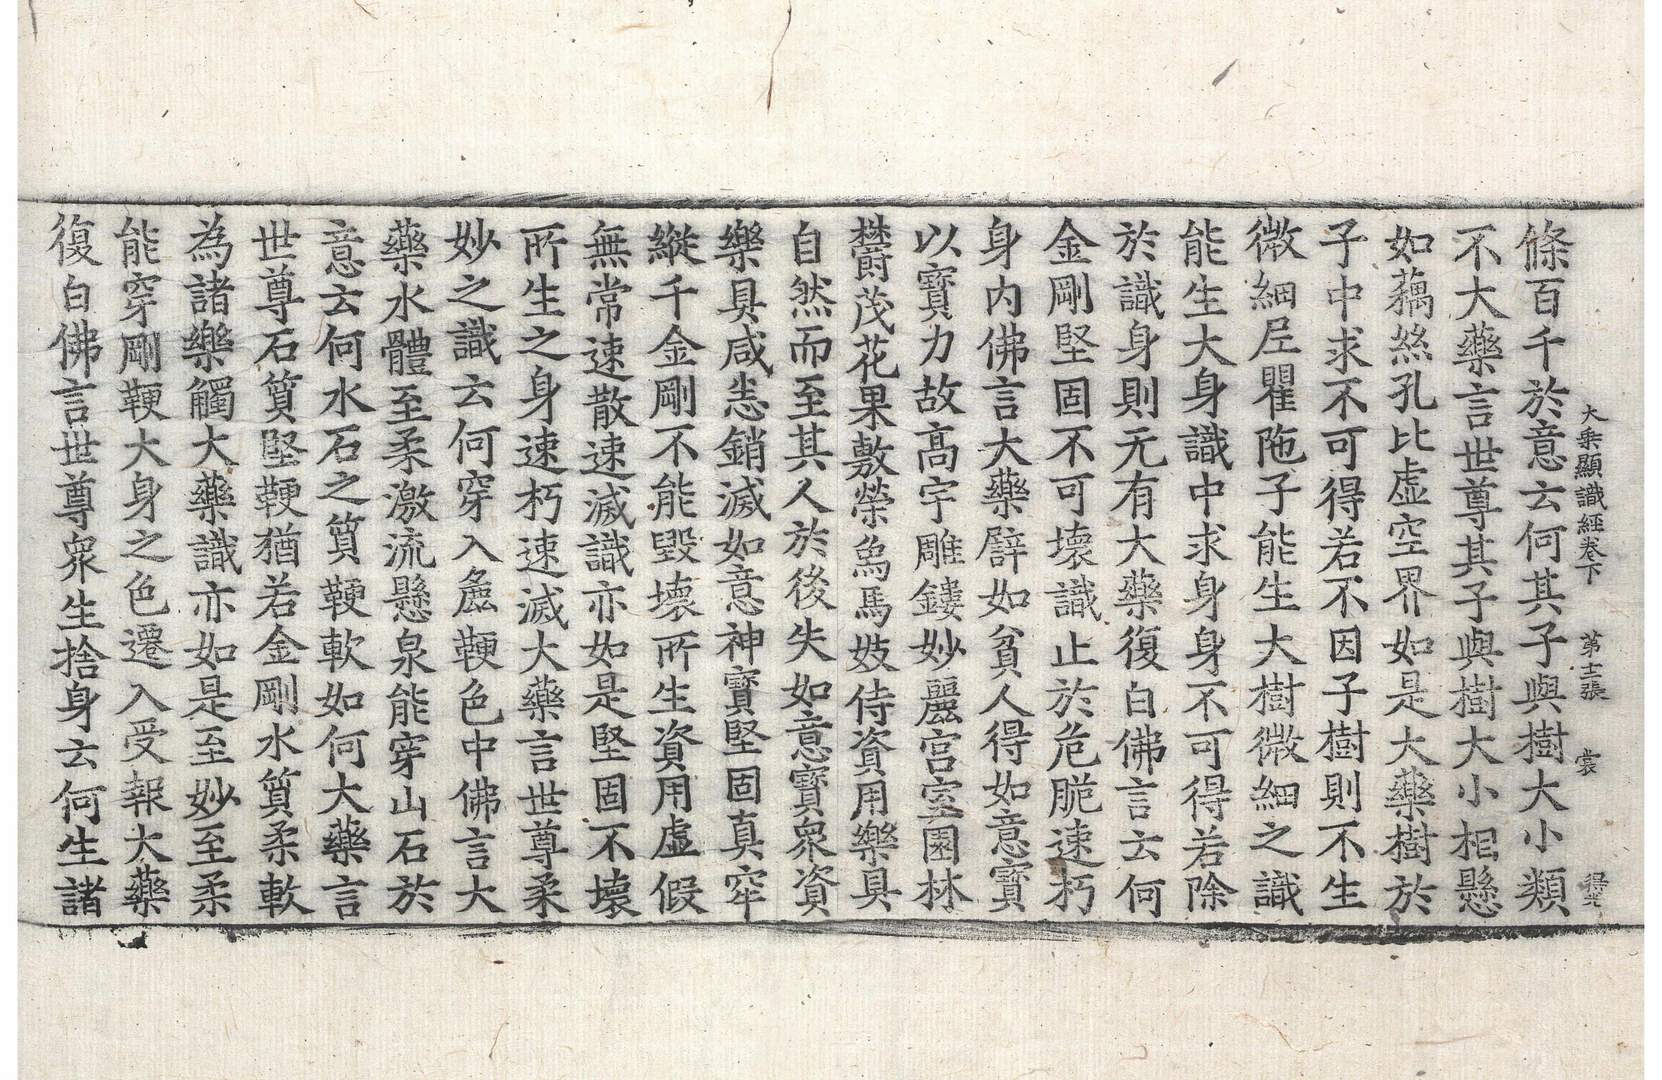 大乘顯識經卷下 第十二張 裳
條百千於意云何其子與樹大小類
不大藥言世尊其子與樹大小相懸
如藕絲孔比虛空界如是大藥樹於
子中求不可得若不因子樹則不生
微細尼瞿陁子能生大樹微細之識
能生大身識中求身身不可得若除
於識身則无有大藥復白佛言云何
金剛堅固不可壞識止於危脆速朽
身內佛言大藥譬如貧人得如意寶
以寶力故高宇雕鏤妙麗宮室園林
欝茂花果敷榮象馬妓侍資用樂具
自然而至其人於後失如意寶衆資
樂具咸恚銷滅如意神寶堅固真牢
縱千金剛不能毀壞所生資用虛假
無常速散速滅識亦如是堅固不壞
所生之身速朽速滅大藥言世尊柔
妙之識云何穿入麁鞕色中佛言大
藥水體至柔激流懸泉能穿山石於
意云何水石之質鞕軟如何大藥言
世尊石質堅鞕猶若金剛水質柔軟
為諸樂觸大藥識亦如是至妙至柔
能穿剛鞕大身之色遷入受報大藥
復白佛言世尊衆生捨身云何生諸